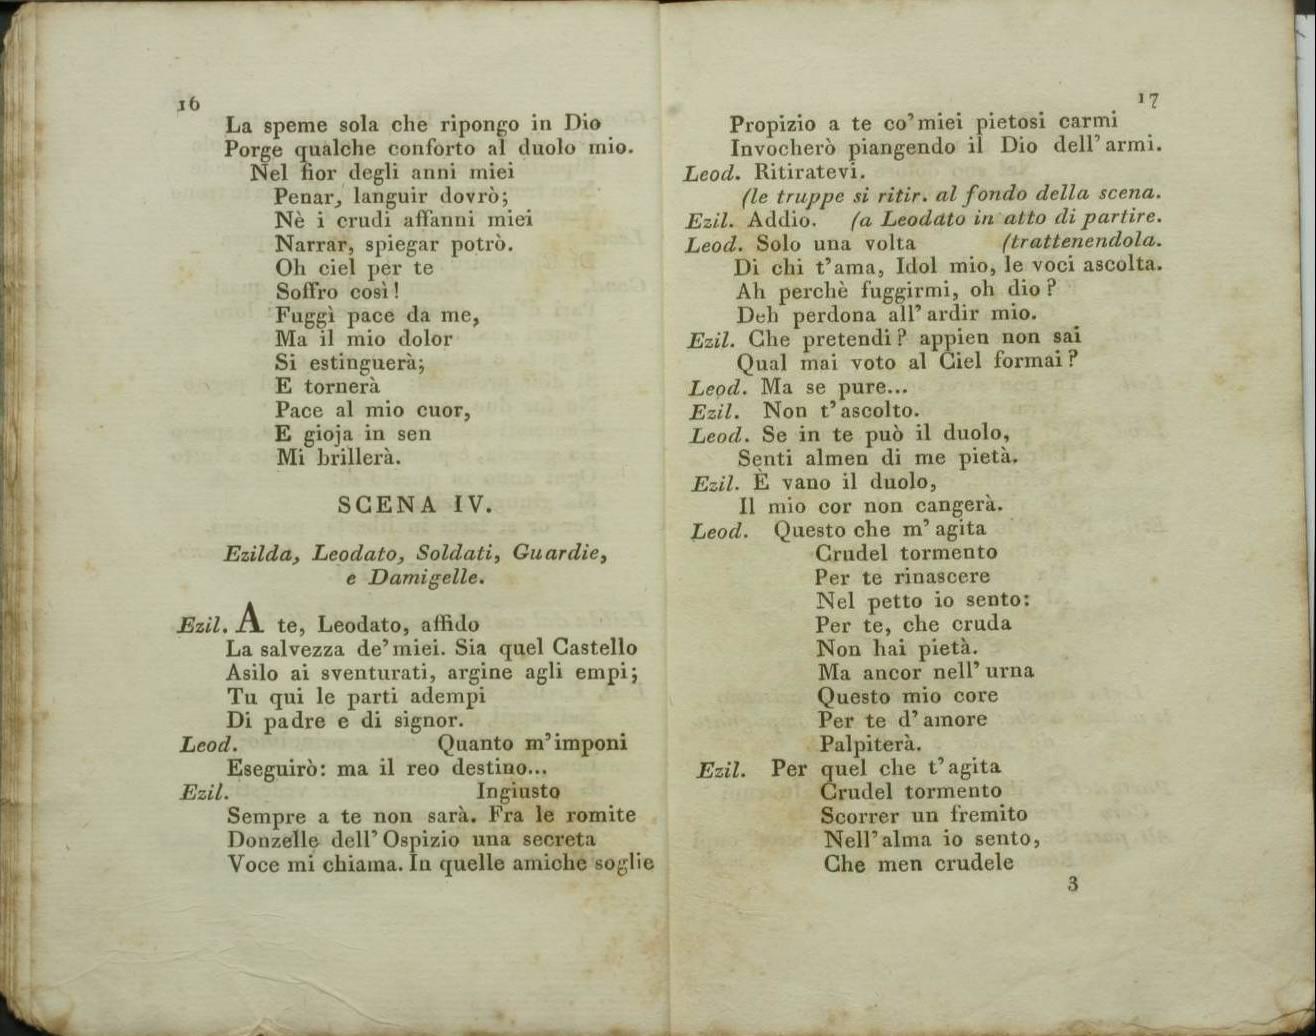 16
La speme sola che ripongo in Dio
Porge qualche conforto al duolo mio.
Nel fior degli anni miei
Penar, languir dovrò;
Nè i crudi affanni miei
Narrar, spiegar potrò.
Oh ciel per te
Soffro così!
Fuggì pace da me,
Ma il mio dolor
Si estinguerà;
E tornerà
Pace al mio cuor,
E gioja in sen
Mi brillerà.
SCENA IV.
Ezilda, Leodato, Soldati, Guardie,
e Damigelle.
Ezil. A te, Leodato, affido
La salvezza de' miei. Sia quel Castello
Asilo ai sventurati, argine agli empi;
Tu qui le parti adempi
Di padre e di signor.
Leod. Quanto m'imponi
Eseguirò: ma il reo destino...
Ezil. Ingiusto
Sempre a te non sarà. Fra le romite
Donzelle dell' Ospizio una secreta
Voce mi chiama. In quelle amiche soglie
17
Propizio a te co' miei pietosi carmi
Invocherò piangendo il Dio dell' armi.
Leod. Ritiratevi.
(le truppe si ritir. al fondo della scena.
Ezil. Addio. (a Leodato in atto di partire.
Leod. Solo una volta (trattenendola.
Di chi t'ama, Idol mio, le voci ascolta.
Ah perchè fuggirmi, oh dio?
Deh perdona all' ardir mio.
Ezil. Che pretendi? appien non sai
Qual mai voto al Ciel formai?
Leod. Ma se pure...
Ezil. Non t' ascolto.
Leod. Se in te può il duolo,
Senti almen di me pietà.
Ezil. È vano il duolo,
Il mio cor non cangerà.
Leod. Questo che m' agita
Crudel tormento
Per te rinascere
Nel petto io sento:
Per te, che cruda
Non hai pietà.
Ma ancor nell' urna
Questo mio core
Per te d' amore
Palpiterà.
Ezil. Per quel che t' agita
Crudel tormento
Scorrer un fremito
Nell' alma io sento,
Che men crudele
3